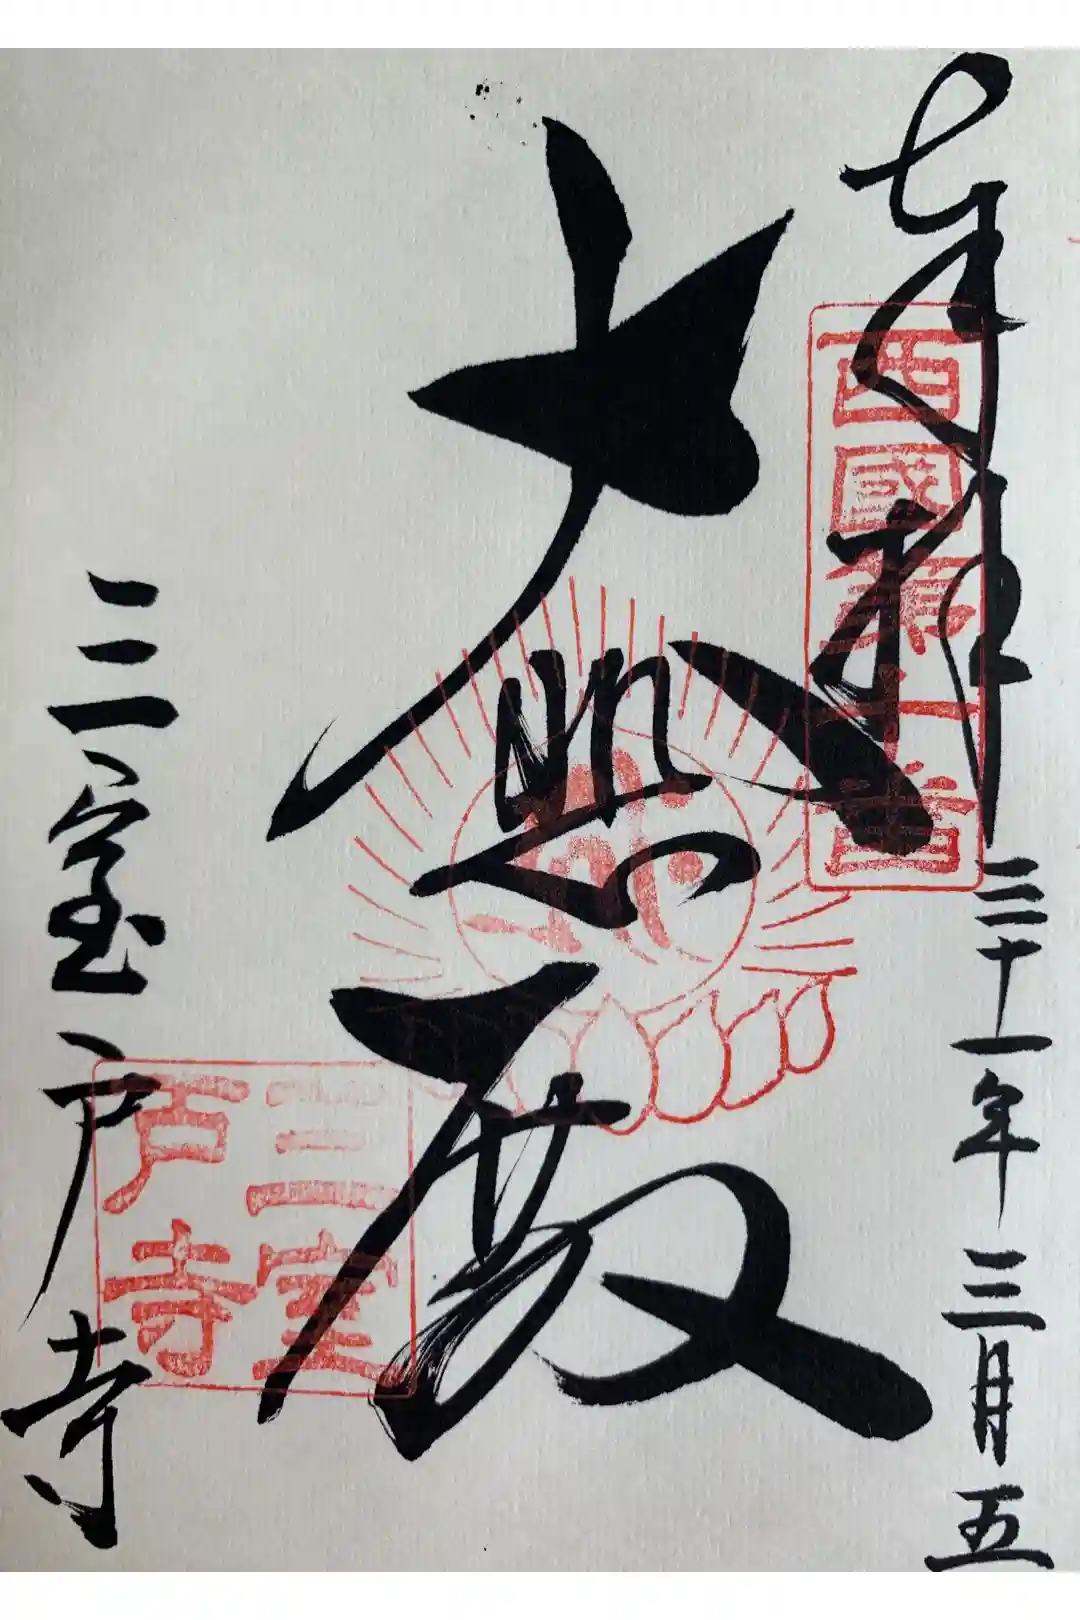 奉拝
西國第十番
三十一年三月五
大悲殿
三室戸寺
三室戸寺